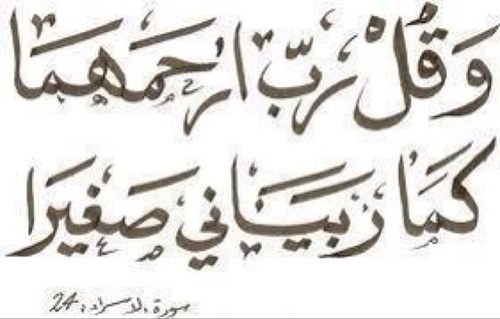 وَقُلْ رَبِّ ارْحَمْهُمَا
كَمَا رَبَّيَانِي صَغِيرًا
سورة الاسراء: 24